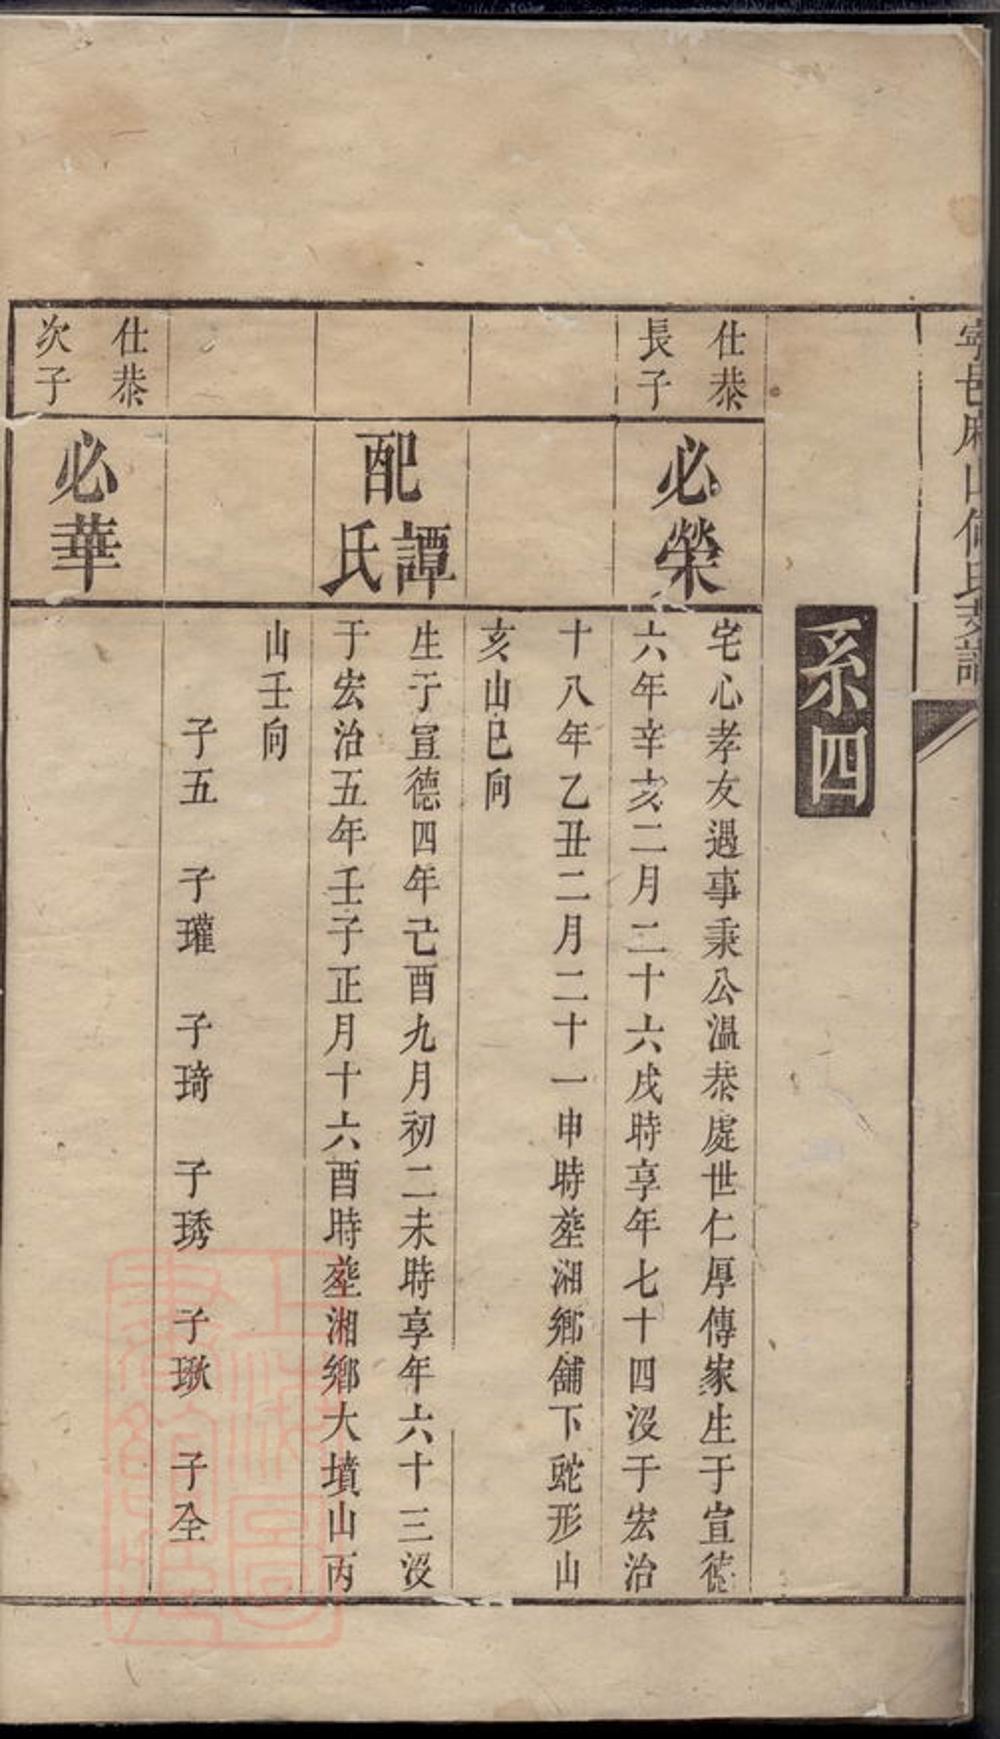 寧邑麻山何氏支譜
系四
仕恭
長子
必榮
宅心孝友遇事秉公溫恭處世仁厚傳家生于宣德
六年辛亥二月二十六戌時享年七十四沒于宏治
十八年乙丑二月二十一申時塟湘鄉舖下虵形山
亥山巳向
配譚氏
生于宣德四年己酉九月初二未時享年六十三沒
于宏治五年壬子正月十六酉時塟湘鄉大墳山丙
山壬向
子五 子瓘 子琦 子琇 子瑹 子全
仕恭
次子
必華
上海圖書館藏